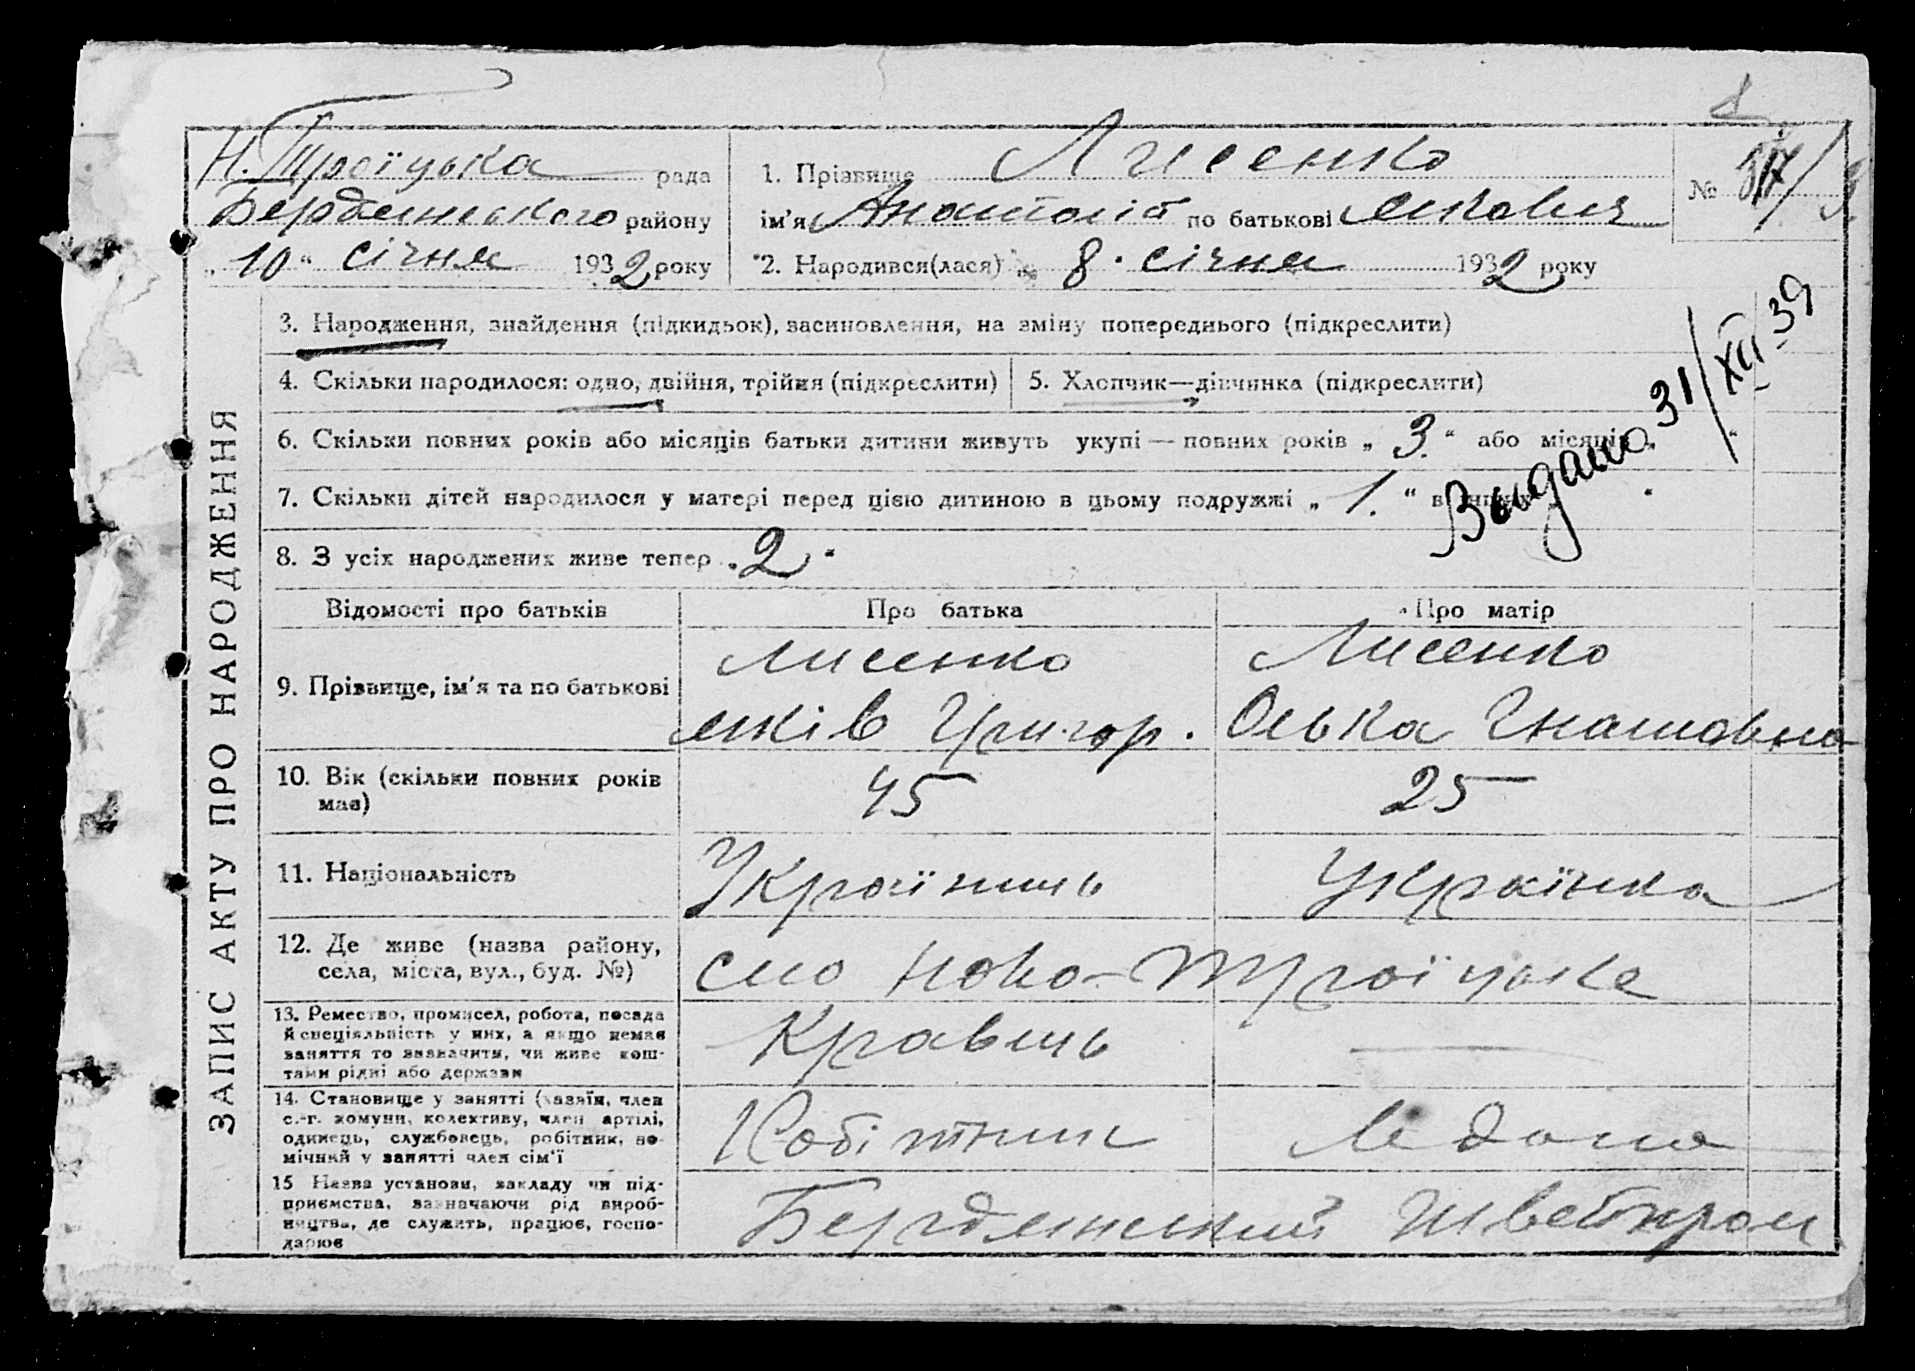 Н. Троїцька рада
Бердянського району
„10“ січня 1932 року
1. Прізвище Лисенко
ім'я Анатолій по батькові Якович
№
2. Народився(лася) 8. січня 1932 року
3. Народження, знайдення (підкидьок), засиновлення, на зміну попереднього (підкреслити)
4. Скільки народилося: одно, двійня, трійня (підкреслити)
5. Хлопчик—дівчинка (підкреслити)
6. Скільки повних років або місяців батьки дитини живуть укупі — повних років „3.“ або місяців „ “
7. Скільки дітей народилося у матері перед цією дитиною в цьому подружжі „1.“
Видано 31/XII 39
8. З усіх народжених живе тепер „2“
ЗАПИС АКТУ ПРО НАРОДЖЕННЯ
Відомості про батьків Про батька Про матір
9. Прізвище, ім'я та по батькові
Лисенко
Яків Григор.
Лисенко
Олька Гнатовна
10. Вік (скільки повних років має)
45 25
11. Національність Українець Українка
12. Де живе (назва району,
села, міста, вул., буд. №)
село Ново-Троїцьке
13. Ремество, промисел, робота, посада
й спеціяльність у них, а якщо немає
заняття то зазначити, чи живе кош-
тами рідні або держави
Кравець —
14. Становище у занятті (хазяїн, член
с.-г. комуни, колективу, член артілі,
одинець, службовець, робітник, по-
мічний у занятті член сім'ї
Робітник
15 Назва установи, закладу чи під-
приємства, зазначаючи рід вироб-
ництва, де служить, працює, госпо-
дарює
Бердянський Швейпром